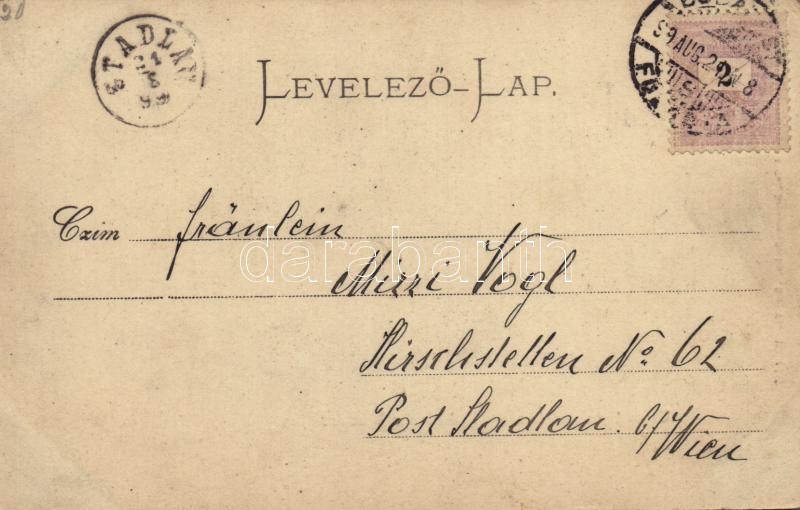 20
STADLAU
21
8
99
LEVELEZŐ-LAP.
99 AUG. 20 N 8
2
Czim fräulein
darabanth
Mizzi Vogl
Hirschstetten No 62
Post Stadlau. b/Wien